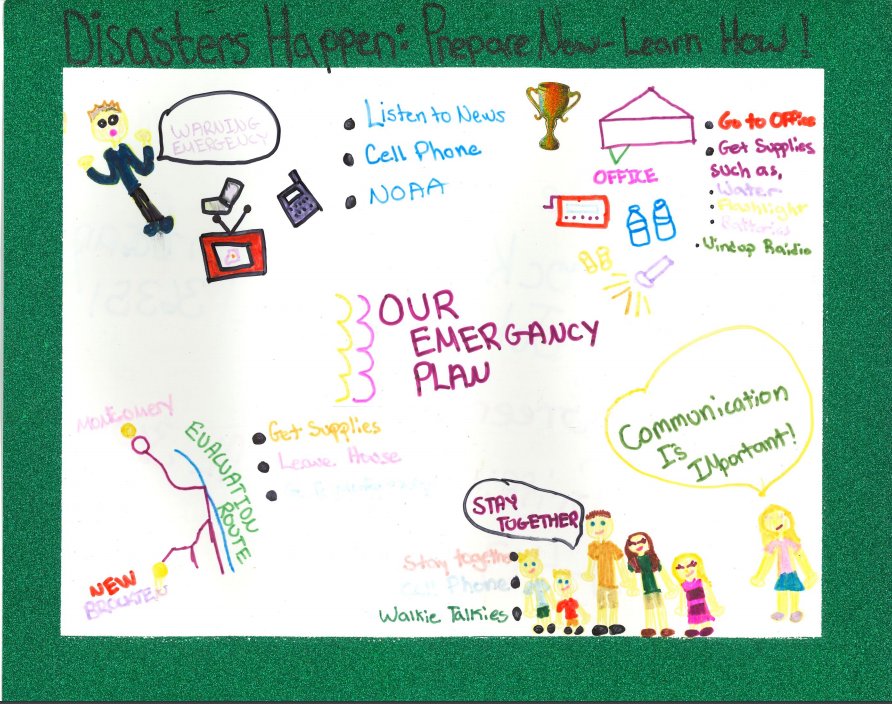 Disasters Happen: Prepare Now-Learn How!
WARNING
EMERGENCY
Listen to News
Cell Phone
NOAA
OFFICE
Go to Office
Get Supplies
such as,
Water
Flashlight
Batteries
Windup Raidio
OUR
EMERGANCY
PLAN
MONTGOMERY
EVACUATION
ROUTE
NEW
BROCKTEN
Get Supplies
Leave House
Communication
Is
Important!
STAY
TOGETHER
Stay together
Cell Phone
Walkie Talkies